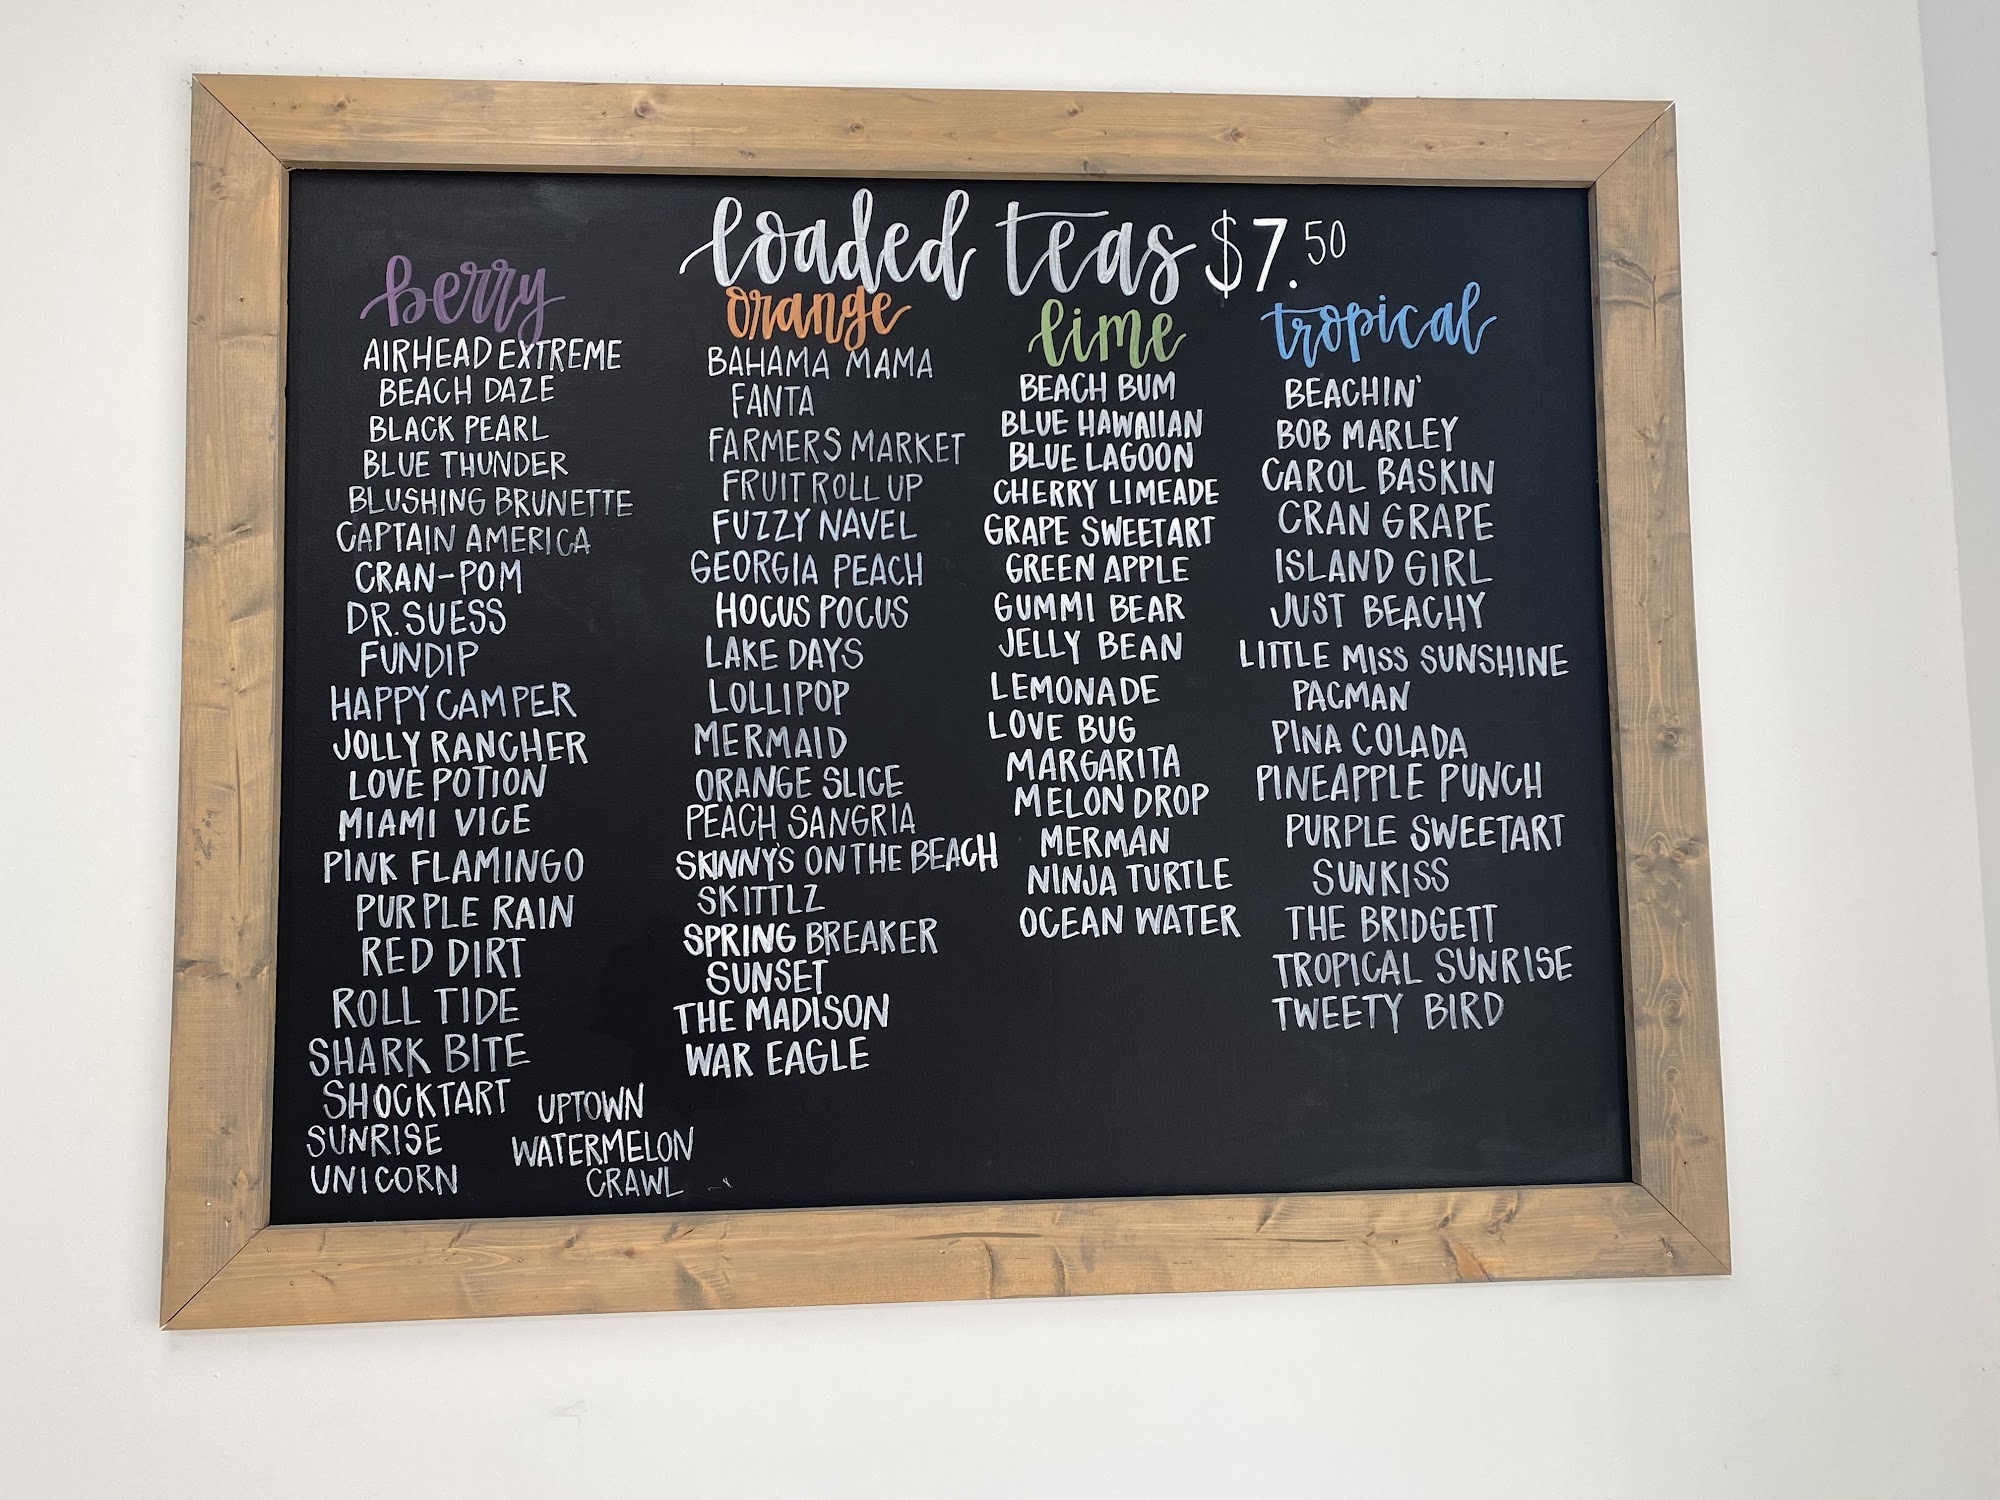 loaded teas $7.50
berry
AIRHEAD EXTREME
BEACH DAZE
BLACK PEARL
BLUE THUNDER
BLUSHING BRUNETTE
CAPTAIN AMERICA
CRAN-POM
DR. SUESS
FUNDIP
HAPPY CAMPER
JOLLY RANCHER
LOVE POTION
MIAMI VICE
PINK FLAMINGO
PURPLE RAIN
RED DIRT
ROLL TIDE
SHARK BITE
SHOCKTART
SUNRISE
UNICORN
UPTOWN
WATERMELON
CRAWL
orange
BAHAMA MAMA
FANTA
FARMERS MARKET
FRUIT ROLL UP
FUZZY NAVEL
GEORGIA PEACH
HOCUS POCUS
LAKE DAYS
LOLLIPOP
MERMAID
ORANGE SLICE
PEACH SANGRIA
SKINNY'S ON THE BEACH
SKITTLZ
SPRING BREAKER
SUNSET
THE MADISON
WAR EAGLE
lime
BEACH BUM
BLUE HAWAIIAN
BLUE LAGOON
CHERRY LIMEADE
GRAPE SWEETART
GREEN APPLE
GUMMI BEAR
JELLY BEAN
LEMONADE
LOVE BUG
MARGARITA
MELON DROP
MERMAN
NINJA TURTLE
OCEAN WATER
tropical
BEACHIN'
BOB MARLEY
CAROL BASKIN
CRAN GRAPE
ISLAND GIRL
JUST BEACHY
LITTLE MISS SUNSHINE
PACMAN
PINA COLADA
PINEAPPLE PUNCH
PURPLE SWEETART
SUNKISS
THE BRIDGETT
TROPICAL SUNRISE
TWEETY BIRD